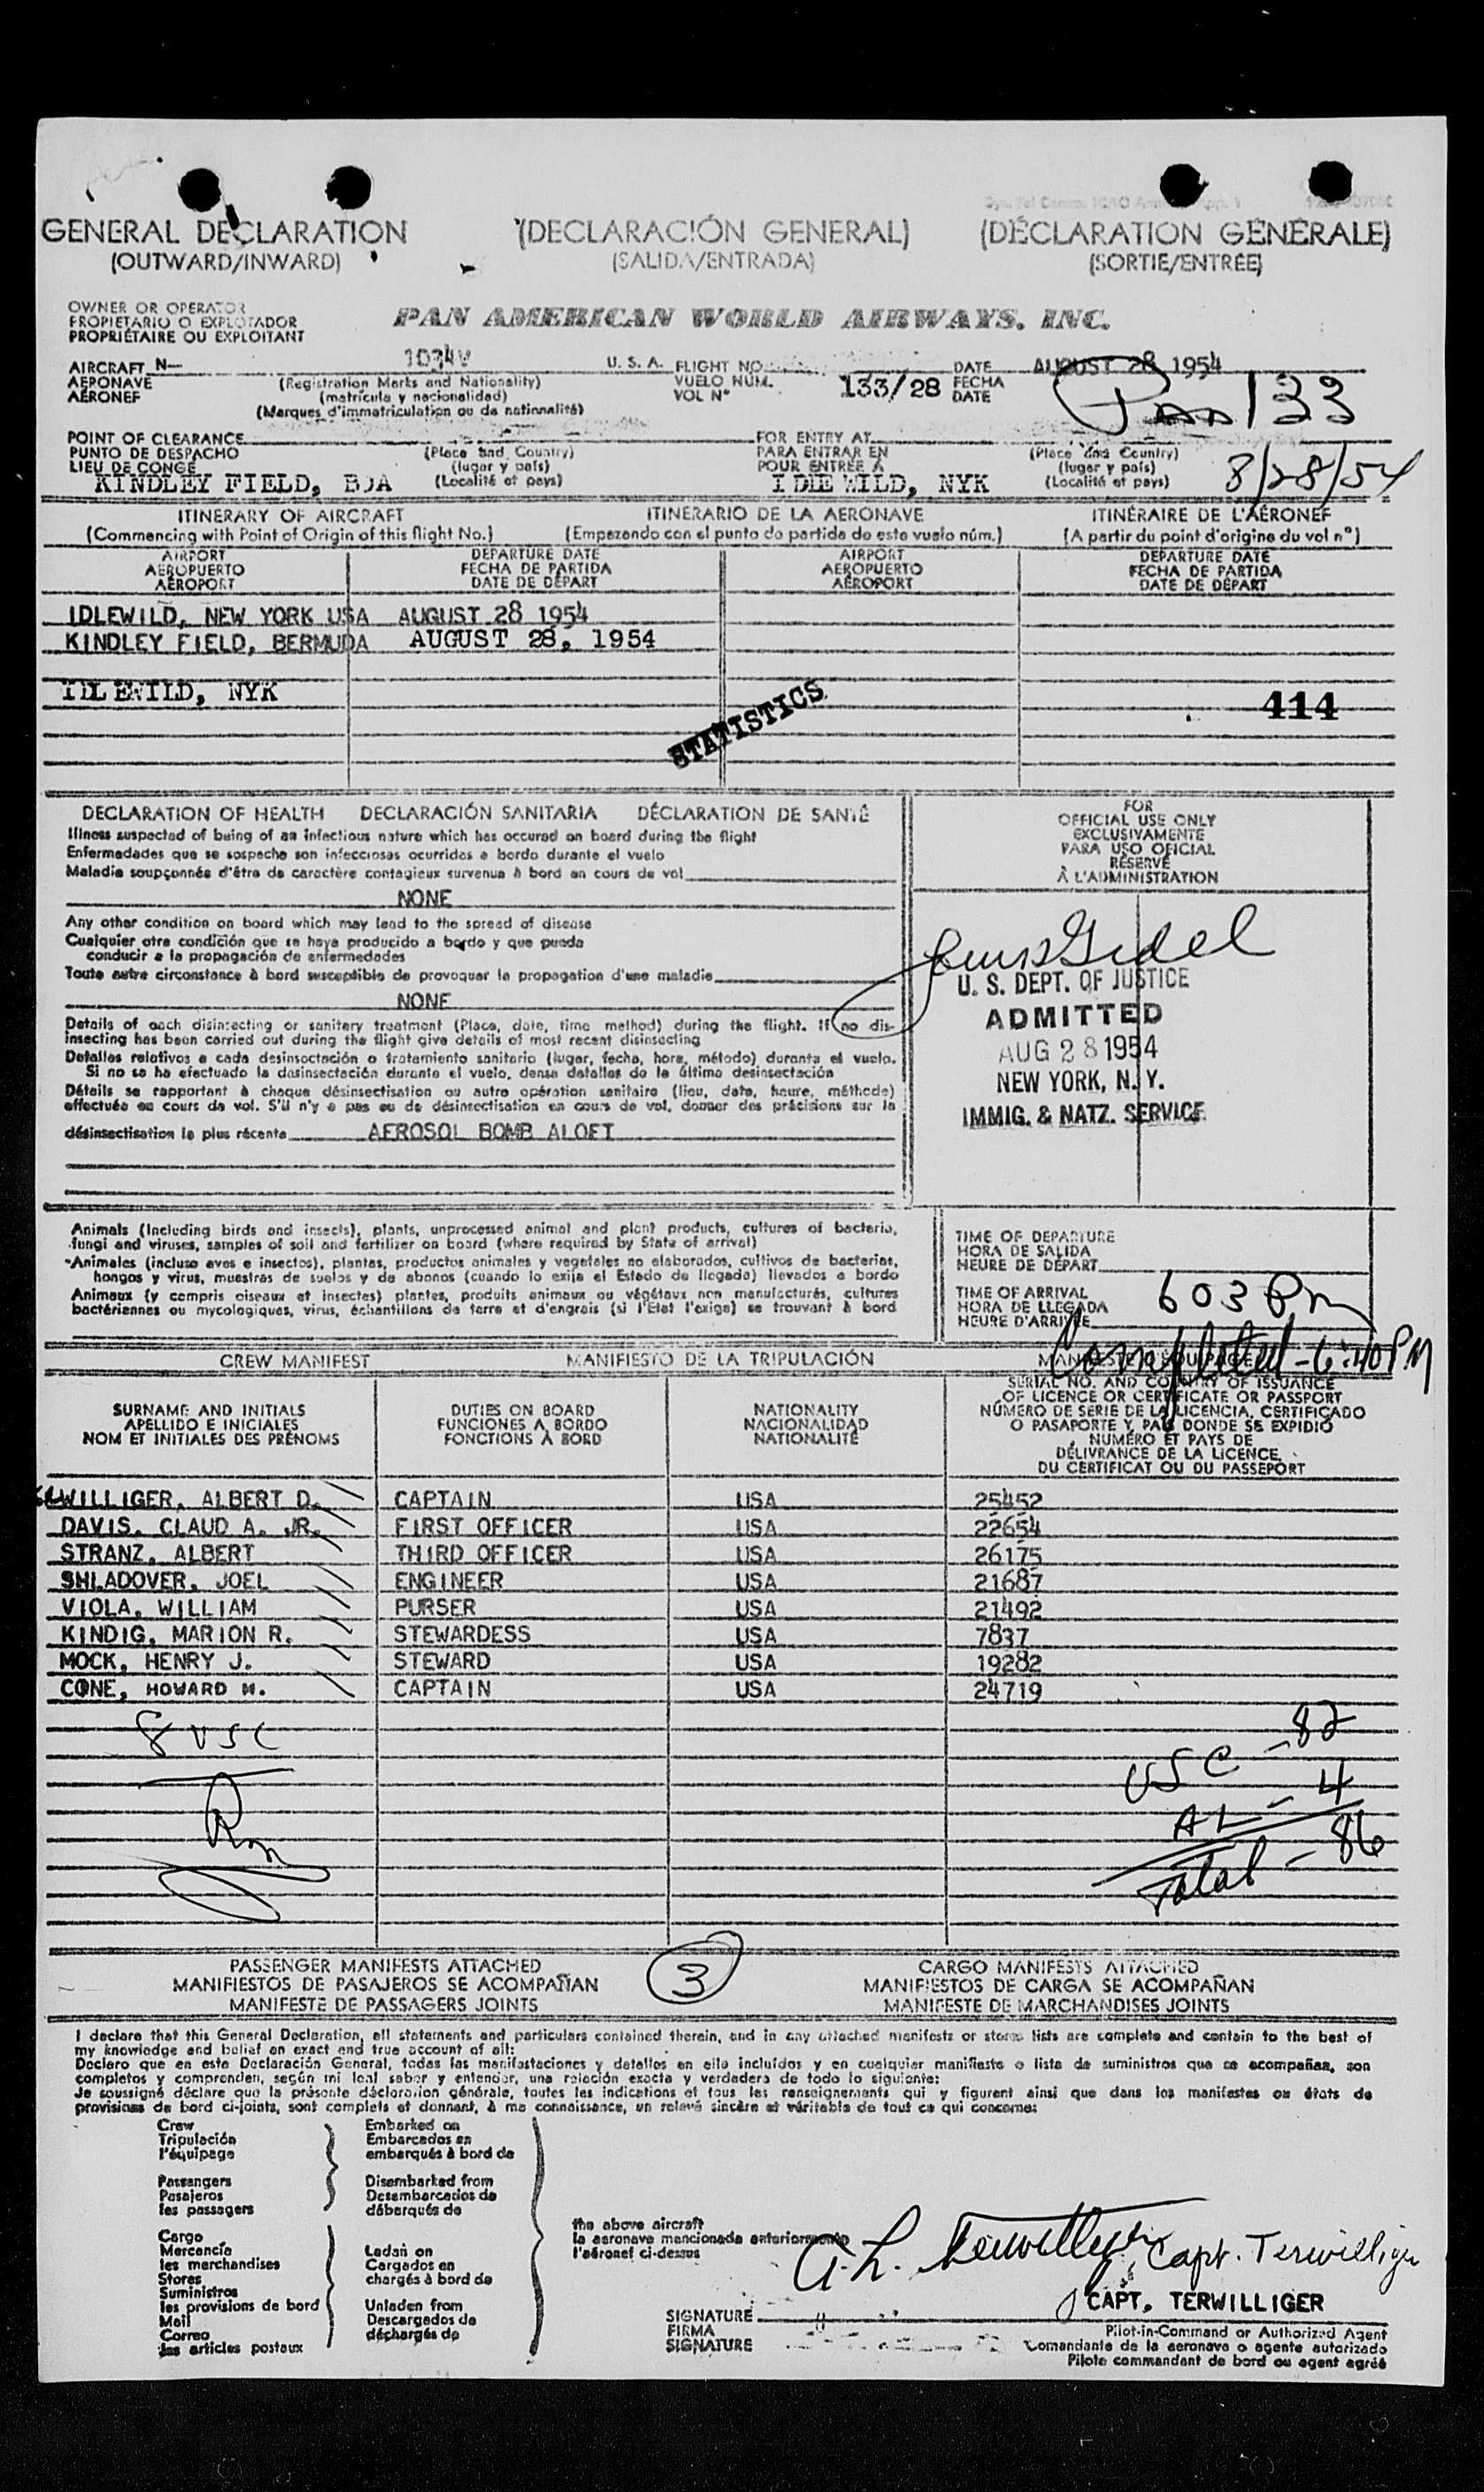 GENERAL DECLARATION (DECLARACIÓN GENERAL) (DÉCLARATION GÉNÉRALE)
(OUTWARD/INWARD) (SALIDA/ENTRADA) (SORTIE/ENTRÉE)
OWNER OR OPERATOR
PROPIETARIO O EXPLOTADOR
PROPRIÉTAIRE OU EXPLOITANT
PAN AMERICAN WORLD AIRWAYS, INC.
AIRCRAFT N- 1034V U. S. A. FLIGHT NO. DATE AUGUST 28 1954
AERONAVE (Registration Marks and Nationality) VUELO NÚM. 133/28 FECHA
AÉRONEF (matrícula y nacionalidad) VOL N° DATE
(Marques d'immatriculation ou de nationalité)
PAA 133
POINT OF CLEARANCE FOR ENTRY AT
PUNTO DE DESPACHO (Place and Country) PARA ENTRAR EN (Place and Country)
LIEU DE CONGÉ (lugar y país) POUR ENTRÉE À (lugar y país)
KINDLEY FIELD, BDA (Localité et pays) IDLEWILD, NYK (Localité et pays)
8/28/54
ITINERARY OF AIRCRAFT ITINERARIO DE LA AERONAVE ITINÉRAIRE DE L'AÉRONEF
(Commencing with Point of Origin of this flight No.) (Empezando con el punto de partida de este vuelo núm.) (A partir du point d'origine du vol n°)
AIRPORT DEPARTURE DATE AIRPORT DEPARTURE DATE
AEROPUERTO FECHA DE PARTIDA AEROPUERTO FECHA DE PARTIDA
AÉROPORT DATE DE DÉPART AÉROPORT DATE DE DÉPART
IDLEWILD, NEW YORK USA AUGUST 28 1954
KINDLEY FIELD, BERMUDA AUGUST 28, 1954
IDLEWILD, NYK
STATISTICS
414
DECLARATION OF HEALTH DECLARACIÓN SANITARIA DÉCLARATION DE SANTÉ
Illness suspected of being of an infectious nature which has occured on board during the flight
Enfermedades que se sospeche son infecciosas ocurridas a bordo durante el vuelo
Maladie soupçonnée d'être de caractère contagieux survenue à bord en cours de vol
NONE
Any other condition on board which may lead to the spread of disease
Cualquier otra condición que se haya producido a bordo y que pueda
conducir a la propagación de enfermedades
Toute autre circonstance à bord susceptible de provoquer la propagation d'une maladie
NONE
Details of each disinsecting or sanitary treatment (Place, date, time method) during the flight. If no dis-
insecting has been carried out during the flight give details of most recent disinsecting
Detalles relativos a cada desinsectación o tratamiento sanitario (lugar, fecha, hora, método) durante el vuelo.
Si no se ha efectuado la desinsectación durante el vuelo, dense detalles de la última desinsectación
Détails se rapportant à chaque désinsectisation ou autre opération sanitaire (lieu, date, heure, méthode)
effectuée en cours de vol. S'il n'y a pas eu de désinsectisation en cours de vol, donner des précisions sur la
désinsectisation la plus récente AEROSOL BOMB ALOFT
FOR
OFFICIAL USE ONLY
EXCLUSIVAMENTE
PARA USO OFICIAL
RÉSERVÉ
À L'ADMINISTRATION
U. S. DEPT. OF JUSTICE
ADMITTED
AUG 28 1954
NEW YORK, N. Y.
IMMIG. & NATZ. SERVICE
Animals (including birds and insects), plants, unprocessed animal and plant products, cultures of bacteria,
fungi and viruses, samples of soil and fertilizer on board (where required by State of arrival)
Animales (incluso aves e insectos), plantas, productos animales y vegetales no elaborados, cultivos de bacterias,
hongos y virus, muestras de suelos y de abonos (cuando lo exija el Estado de llegada) llevados a bordo
Animaux (y compris oiseaux et insectes) plantes, produits animaux ou végétaux non manufacturés, cultures
bactériennes ou mycologiques, virus, échantillons de terre et d'engrais (si l'État l'exige) se trouvant à bord
TIME OF DEPARTURE
HORA DE SALIDA
HEURE DE DÉPART
TIME OF ARRIVAL
HORA DE LLEGADA 603 Pm
HEURE D'ARRIVÉE
Completed - 6:40 PM
CREW MANIFEST MANIFIESTO DE LA TRIPULACIÓN
SURNAME AND INITIALS
APELLIDO E INICIALES
NOM ET INITIALES DES PRÉNOMS
DUTIES ON BOARD
FUNCIONES A BORDO
FONCTIONS À BORD
NATIONALITY
NACIONALIDAD
NATIONALITÉ
SERIAL NO. AND COUNTRY OF ISSUANCE
OF LICENCE OR CERTIFICATE OR PASSPORT
NÚMERO DE SERIE DE LA LICENCIA, CERTIFICADO
O PASAPORTE Y PAÍS DONDE SE EXPIDIÓ
NUMÉRO ET PAYS DE
DÉLIVRANCE DE LA LICENCE,
DU CERTIFICAT OU DU PASSEPORT
WILLIGER, ALBERT D. CAPTAIN USA 25452
DAVIS, CLAUD A. JR. FIRST OFFICER USA 22654
STRANZ, ALBERT THIRD OFFICER USA 26175
SHLADOVER, JOEL ENGINEER USA 21687
VIOLA, WILLIAM PURSER USA 21492
KINDIG, MARION R. STEWARDESS USA 7837
MOCK, HENRY J. STEWARD USA 19282
CONE, HOWARD M. CAPTAIN USA 24719
8 USC
USC - 82
AL - 4
Total - 86
PASSENGER MANIFESTS ATTACHED CARGO MANIFESTS ATTACHED
MANIFIESTOS DE PASAJEROS SE ACOMPAÑAN 3 MANIFIESTOS DE CARGA SE ACOMPAÑAN
MANIFESTE DE PASSAGERS JOINTS MANIFESTE DE MARCHANDISES JOINTS
I declare that this General Declaration, all statements and particulars contained therein, and in any attached manifests or stores lists are complete and contain to the best of
my knowledge and belief an exact and true account of all:
Declaro que en esta Declaración General, todas las manifestaciones y detalles en ella incluídos y en cualquier manifiesto o lista de suministros que se acompañan, son
completos y comprenden, según mi leal saber y entender, una relación exacta y verdadera de todo lo siguiente:
Je soussigné déclare que la présente déclaration générale, toutes les indications et tous les renseignements qui y figurent ainsi que dans les manifestes ou états de
provisions de bord ci-joints, sont complets et donnent, à ma connaissance, un relevé sincère et véritable de tout ce qui concerne:
Crew Embarked on
Tripulación Embarcados en
l'équipage embarqués à bord de
Passengers Disembarked from
Pasajeros Desembarcados de
les passagers débarqués de
Cargo
Mercancía Laden on
les marchandises Cargados en
Stores chargés à bord de
Suministros
les provisions de bord Unladen from
Mail Descargados de
Correo déchargés de
les articles postaux
the above aircraft
la aeronave mencionada anteriormente
l'aéronef ci-dessus
A. L. Terwilliger Capt. Terwilliger
CAPT. TERWILLIGER
SIGNATURE
FIRMA
SIGNATURE
Pilot-in-Command or Authorized Agent
Comandante de la aeronave o agente autorizado
Pilote commandant de bord ou agent agréé